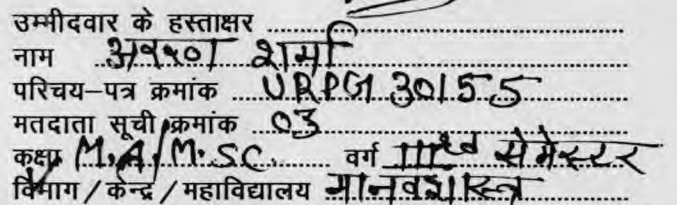 उम्मीदवार के हस्ताक्षर
नाम अरुणा शर्मा
परिचय–पत्र क्रमांक URPG 30155
मतदाता सूची क्रमांक 03
कक्षा M.A/M.SC. वर्ग IIIrd सेमेस्टर
विभाग / केन्द्र / महाविद्यालय मानवशास्त्र